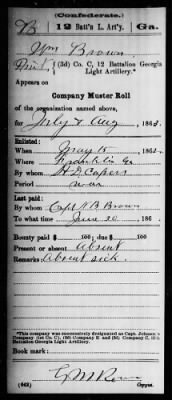 (Confederate.)
B 12 Batt'n L. Art'y. Ga.
Wm Brown
Pvt, (3d) Co. C, 12 Battalion Georgia
Light Artillery.*
Appears on
Company Muster Roll
of the organization named above,
for July & Aug, 1863.
Enlisted:
When May 15, 1862.
Where Franklin Ga
By whom H D Capers
Period war
Last paid:
By whom Capt W B Brown
To what time June 30, 186 .
Bounty paid $ 100; due $ 100
Present or absent Absent
Remarks: Absent sick.
*This company was successively designated as Capt. Johnson's
Company (1st Co. C), (3d) Company E and (3d) Company C, 12th
Battalion Georgia Light Artillery.
Book mark:
(642) Copyist.